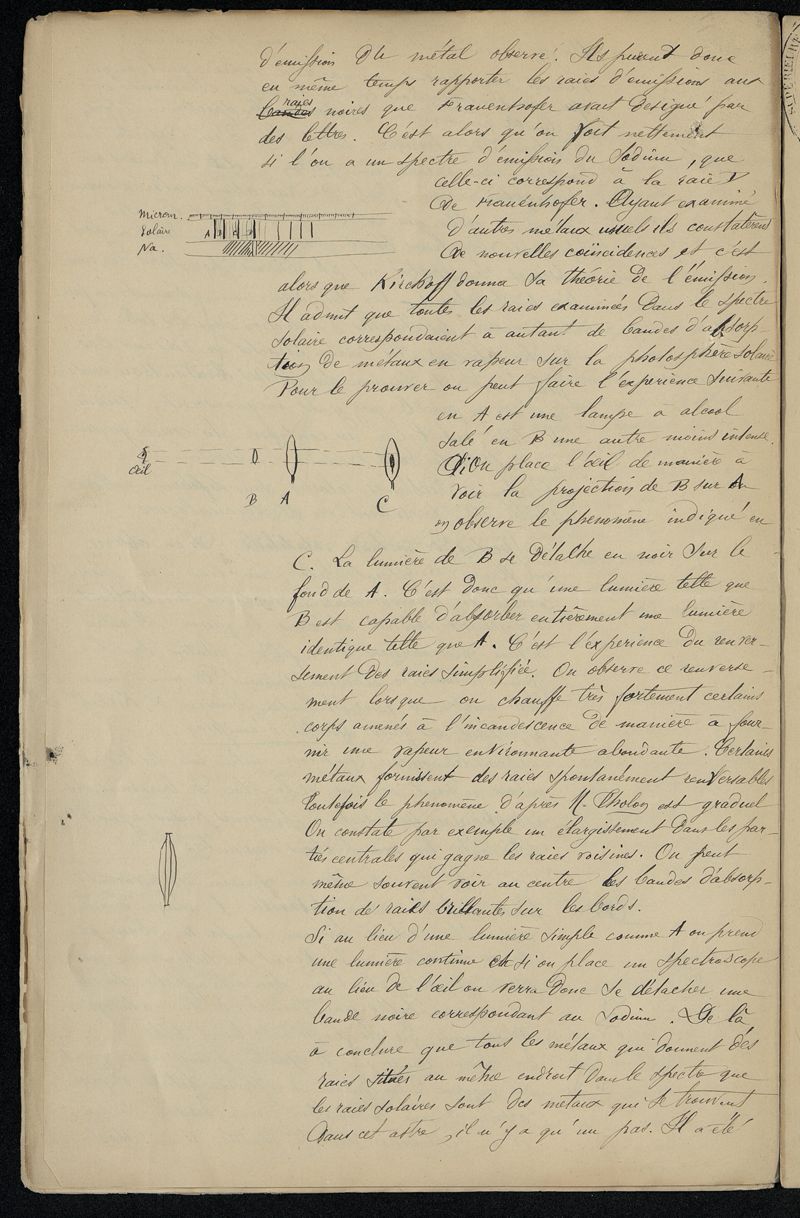 d'émission du métal observé. Ils purent donc
en même temps rapporter les raies d'émissions aux
bandes raies noires que Frauenhofer avait désigné par
des lettres. C'est alors qu'on voit nettement
si l'on a un spectre d'émission du Sodium, que
celle-ci correspond à la raie D
de Frauenhofer. Ayant examiné
d'autres métaux usuels ils constatèrent
de nouvelles coïncidences et c'est
Microm.
Solaire
Na.
alors que Kirchoff donna sa théorie de l'émission.
Il admit que toutes les raies examinées dans le spectre
solaire correspondaient à autant de bandes d'absorp-
tion de métaux en vapeur sur la photosphère solaire
Pour le prouver on peut faire l'expérience suivante
en A est une lampe à alcool
salé en B une autre moins intense.
Si on place l'œil de manière à
voir la projection de B sur A
on observe le phénomène indiqué en
Œil
B A C
C. La lumière de B se détache en noir sur le
fond de A. C'est donc qu'une lumière telle que
B est capable d'absorber entièrement une lumière
identique telle que A. C'est l'expérience du renver-
sement des raies simplifiée. On observe ce renverse-
ment lorsque on chauffe très fortement certains
corps amenés à l'incandescence de manière à four-
nir une vapeur environnante abondante. Certains
métaux fournissent des raies spontanément renversables
Toutefois le phénomène d'après M. Tholon est graduel
On constate par exemple un élargissement dans les par-
ties centrales qui gagne les raies voisines. On peut
même souvent voir au centre les bandes d'absorp-
tion de raies brillantes sur les bords.
Si au lieu d'une lumière simple comme A on prend
une lumière continue et si on place un spectroscope
au lieu de l'œil on verra donc se détacher une
bande noire correspondant au Sodium. De là
à conclure que tous les métaux qui donnent des
raies situées au même endroit dans le spectre que
les raies solaires sont des métaux qui se trouvent
dans cet astre, il n'y a qu'un pas. Il a été